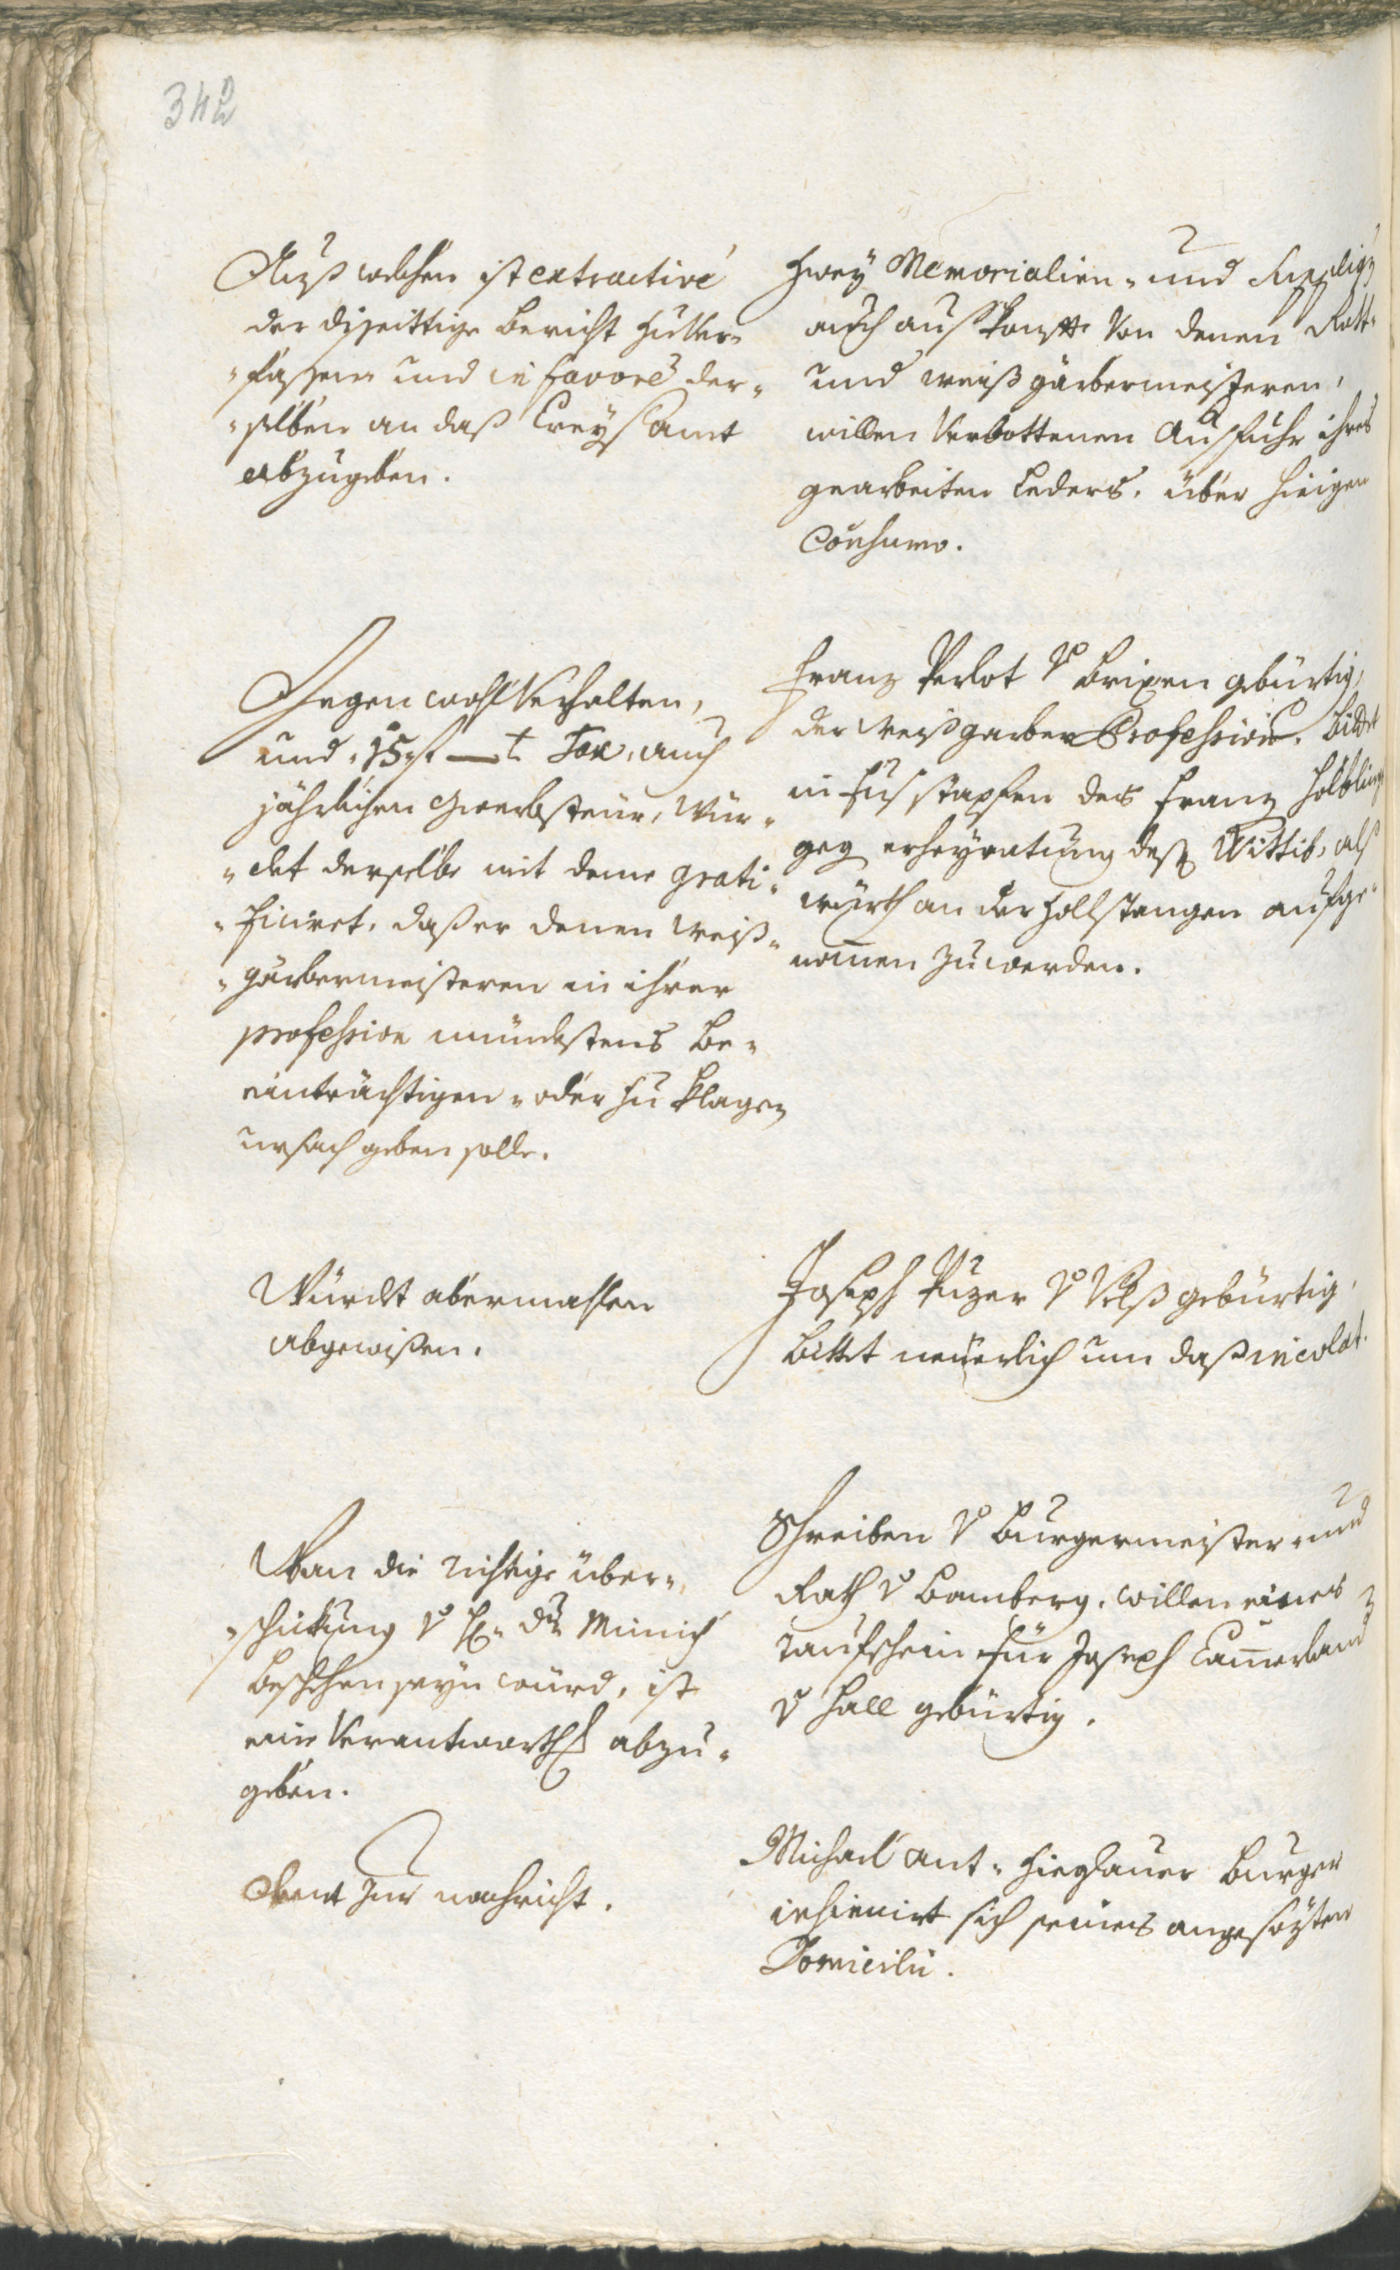 342
Auß welchen ist extractivè
der diseittige bericht zu ver-
-fassen und in favorè der-
-selben an daß Creysamt
abzugeben.
Zwey Memorialien- und
auch von denen Rott-
und weißgärbermeisteren,
willen verbottenen Ausfuhr ihres
gearbeiten Leders, über hieigen
Consumo.
Gegen wohlverhalten,
und 15 f — x Tax, auch
jährlichen Gwerbsteur, Wür-
-det derselbe mit deme grati-
-ficiret, daß er denen weiß-
-gärbermeisteren in ihrer
profession mündestens be-
einträchtigen- oder zu klagen
ursach geben solle.
Franz Perlot v Brixen gebürtig,
der Weißgarber Profession, Bittet
in Fusstapfen des Franz Hölbling
geg erheyratung deß Wittib, als
würth an der Zollstangen aufge-
nomen zuwerden.
Würdet abermahlen
abgewißen.
Joseph Puzer v Velß gebürtig,
bittet neuerlich um daß incolat.
Wan die richtige über-
-schikung v H: Dr Minich
beschehen seyn würd, ist
ein Verantworth abzu-
geben.
Schreiben v Burgermeister- und
Rath v Bamberg, willen eines
taufschein für Joseph Camerland
v Hall gebürtig.
Dient zur nachricht.
Michael Ant: Hieglauer Burger
insinuirt sich seines angesezten
Domicilii.